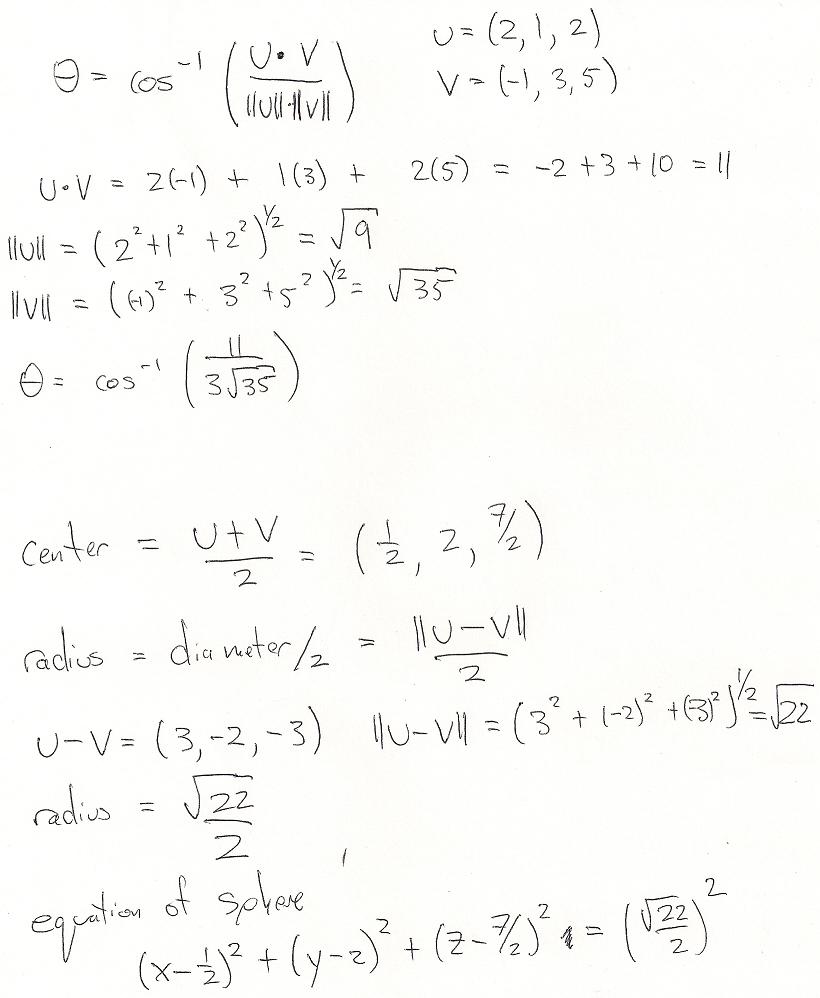 θ = cos⁻¹ (U • V / ||U||·||V||) U = (2, 1, 2)
V = (-1, 3, 5)
U•V = 2(-1) + 1(3) + 2(5) = -2 + 3 + 10 = 11
||U|| = (2² + 1² + 2²)^1/2 = √9
||V|| = ((-1)² + 3² + 5²)^1/2 = √35
θ = cos⁻¹ (11 / 3√35)
center = U + V / 2 = (1/2, 2, 7/2)
radius = diameter/2 = ||U - V|| / 2
U - V = (3, -2, -3) ||U - V|| = (3² + (-2)² + (-3)²)^1/2 = √22
radius = √22 / 2
equation of sphere
(x - 1/2)² + (y - 2)² + (z - 7/2)² = (√22 / 2)²